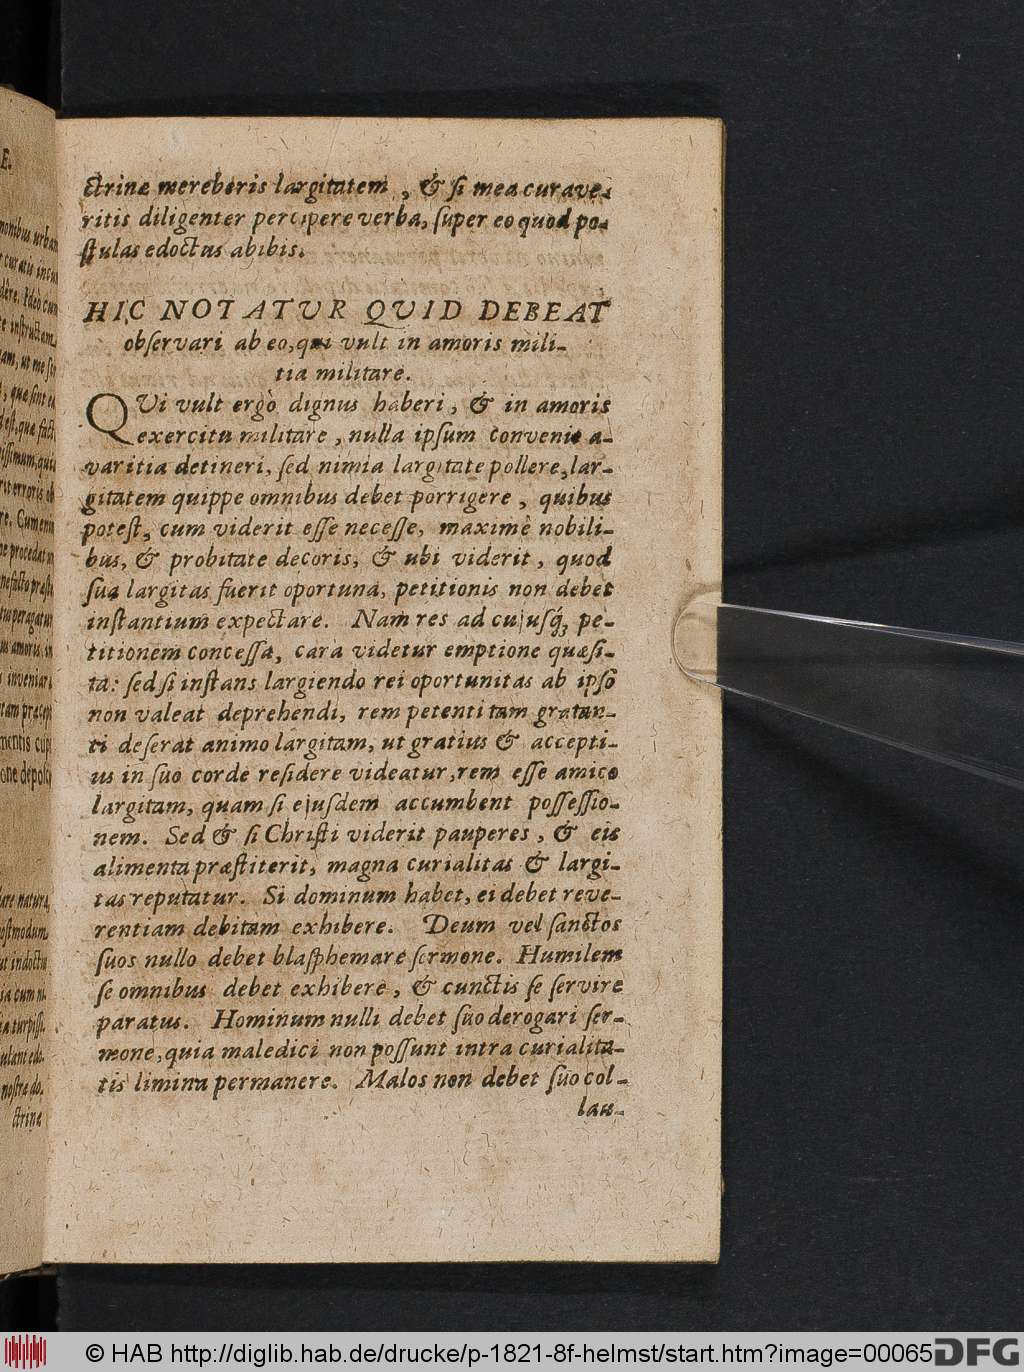 ctrinæ mereberis largitatem, & si mea curave-
ritis diligenter percipere verba, super eo quod po-
stulas edoctus abibis.
HIC NOTATUR QVID DEBEAT
observari ab eo, qui vult in amoris mili-
tia militare.
QVi vult ergò dignus haberi, & in amoris
exercitu militare, nulla ipsum convenit a-
varitia detineri, sed nimia largitate pollere, lar-
gitatem quippe omnibus debet porrigere, quibus
potest, cum viderit esse necesse, maximè nobili-
bus, & probitate decoris, & ubi viderit, quod
sua largitas fuerit oportuna, petitionis non debet
instantium expectare. Nam res ad cujusq́; pe-
titionem concessa, cara videtur emptione quæsi-
ta: sed si instans largiendo rei oportunitas ab ipso
non valeat deprehendi, rem petenti tam gratan-
ti deserat animo largitam, ut gratius & accepti-
us in suo corde residere videatur, rem esse amico
largitam, quam si ejusdem accumbent possessio-
nem. Sed & si Christi viderit pauperes, & eis
alimenta præstiterit, magna curialitas & largi-
tas reputatur. Si dominum habet, ei debet reve-
rentiam debitam exhibere. Deum vel sanctos
suos nullo debet blasphemare sermone. Humilem
se omnibus debet exhibere, & cunctis se servire
paratus. Hominum nulli debet suo derogari ser-
mone, quia maledici non possunt intra curialita-
tis limina permanere. Malos non debet suo col-
lau-
© HAB http://diglib.hab.de/drucke/p-1821-8f-helmst/start.htm?image=00065
DFG